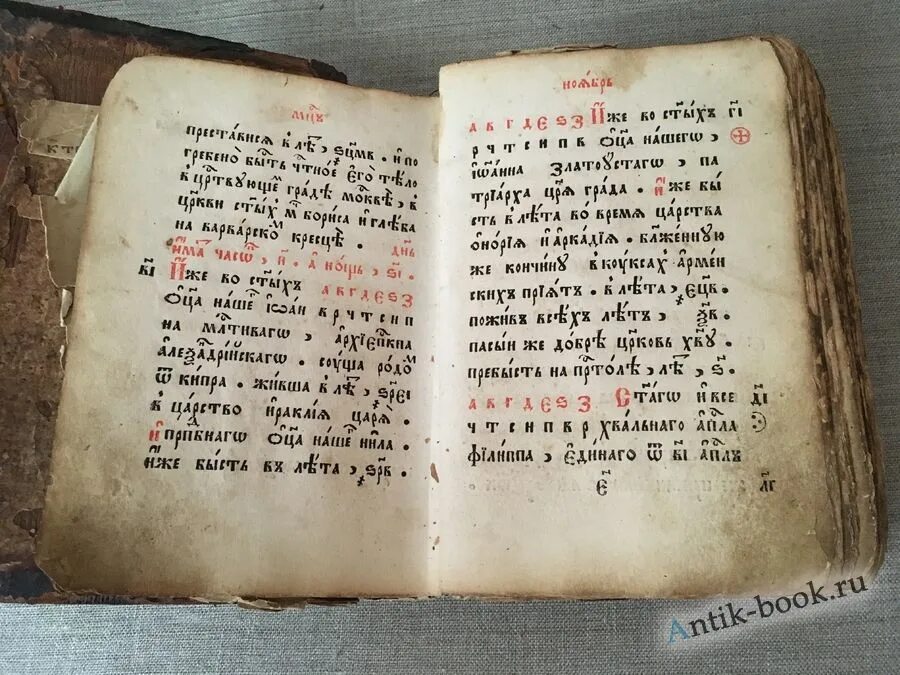 мцъ
преставися в лѣ҇, ҂зцмв. и по
гребено быть чтное его тѣло
в црⷭ҇твующеⷨ градѣ москвѣ, в
цркви стыхъ мⷱ бориса и глѣба
на варварскоⷨ крестцѣ. днь
имать часѡⷡ, и҃. а нощь, s҃i.
в҃i Иже во стыхъ а в г д е s з
о҃ца нашеⷢ іѡан в р ч т с и п
на млⷭ҇тиваго, архіепⷭ҇кпа
алеѯадрійскаго. суща родоⷨ
ѿ кипра. живша в лѣⷮ, ҂sрⷬеі
в царство ираклія царя.
и прпⷣбнаго о҃ца нашеⷢ нила.
иже бысть въ лѣта, ҂sрв.
ноябрь
а в г д е s з Иже во стыхъ г҃i
р ч т с и п в о҃ца нашего,
іѡанна златоустаго, па
тріарха цря града. иже бы
сть в лѣта во время царства
онорія и аркадія. блаженную
же кончину в коуксахъ армен
скихъ пріятъ. в лѣта, ҂ецв.
поживъ всѣхъ лѣтъ, ѯв.
пасый же добрѣ црковь хвⷭу
пребысть на прⷭтолѣ, лѣⷮ, s҃.
а в г д е s з Стаго и все д҃i
ч т с и п в р хвальнаго апⷭла
филиппа, единаго ѿ в҃i апⷭлъ
е҃ лг
Antik-book.ru